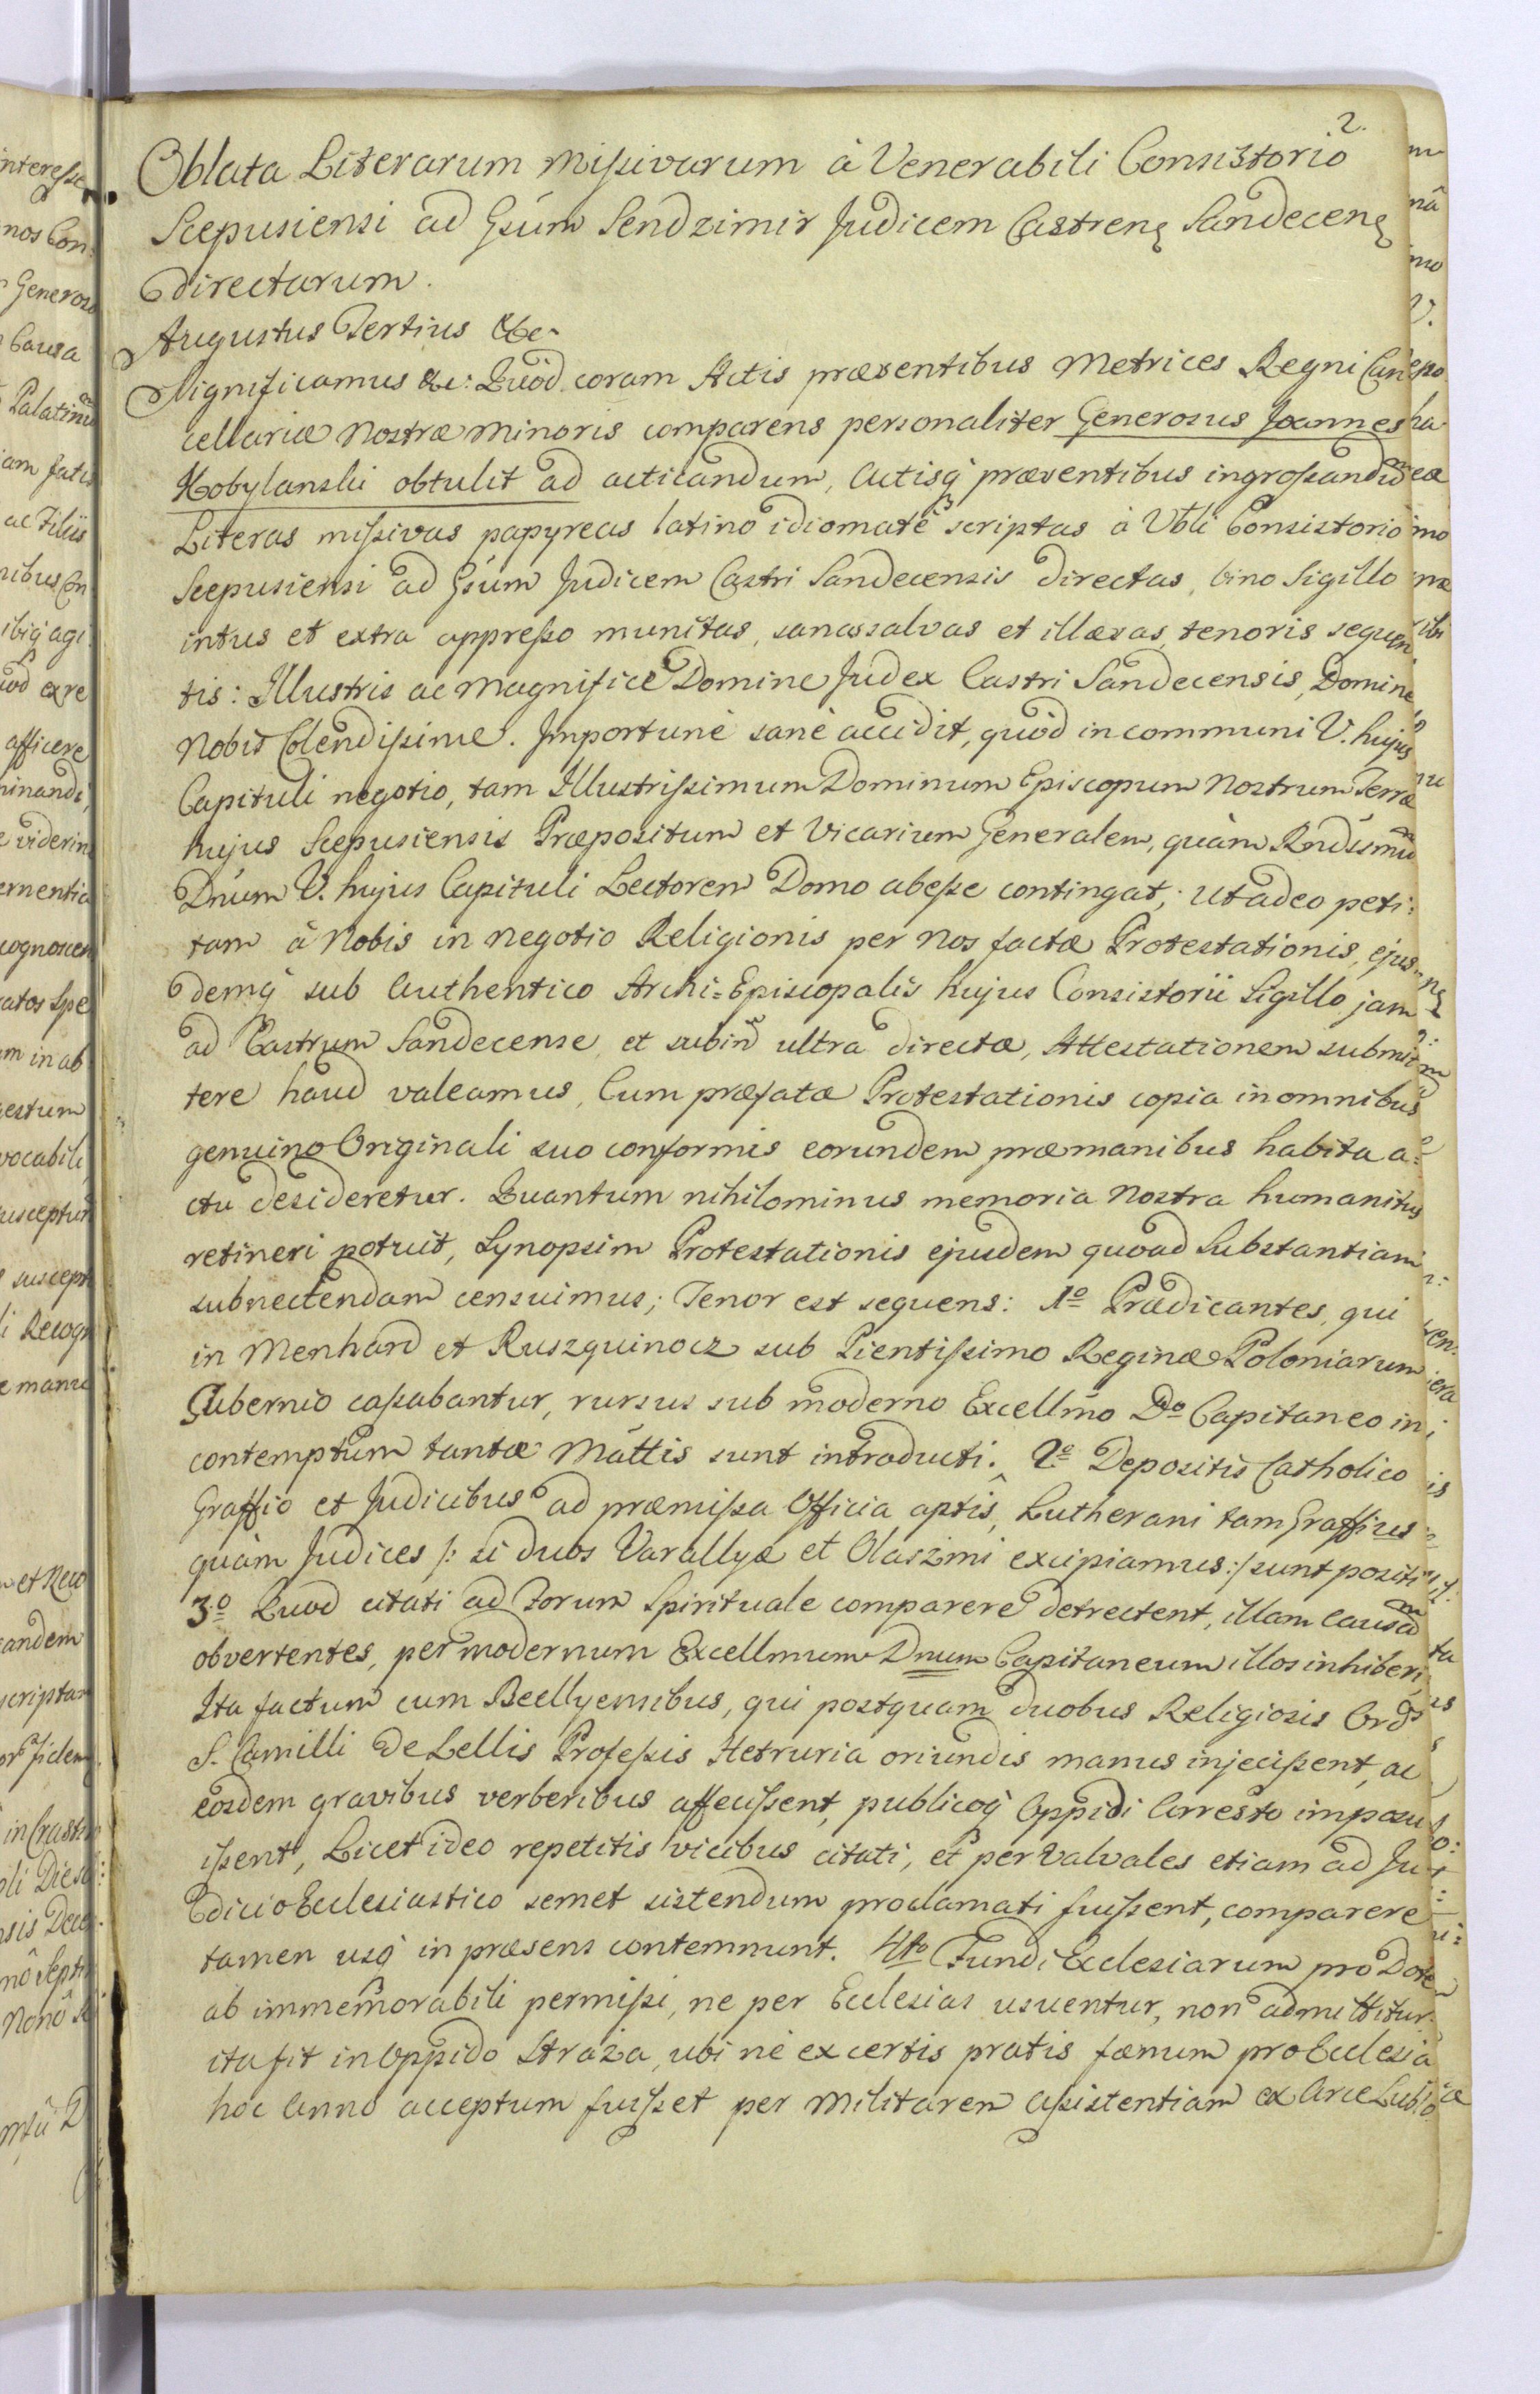 2.
Oblata Literarum Missivarum à Venerabili Consistorio
Scepusiensi ad Gsum Sendzimir Judicem Castren. Sandecen.
directarum.
Augustus Tertius &c.
Significamus &c: Quod coram Actis præsentibus Metrices Regni Can
cellariæ Nostræ Minoris comparens personaliter Generosus Joannes
Kobylanski obtulit ad acticandum, Actisq́ præsentibus ingrossandũ
Literas missivas papyreas latino idiomate scriptas à Vbli Consistorio
Scepusiensi ad Gsum Judicem Castri Sandecensis directas, bino Sigillo
intus et extra appresso munitas, sanas salvas et illæsas, tenoris sequen
tis: Illustris ac Magnifice Domine Judex Castri Sandecensis, Domine
Nobis Colendissime. Importunè sanè accidit, quod in communi V. hujus
Capituli negotio, tam Illustrissimum Dominum Episcopum Nostrum Terræ
hujus Scepusiensis Præpositum et Vicarium Generalem, quàm Rndssmũ
Dnum V. hujus Capituli Lectorem Domo abesse contingat; Ut adeo peti:
tam à Nobis in negotio Religionis per Nos factæ Protestationis, ejus-
demq́ sub Authentico Archi=Episcopalis hujus Consistorii Sigillo jam
ad Castrum Sandecense, et subinď ultra directæ, Attestationem submit
tere haud valeamus, Cum præfatæ Protestationis copia in omnibus
genuino Originali suo conformis eorundem præ manibus habita a=
ctu desideretur. Quantum nihilominus memoria Nostra humanitus
retineri potuit, Synopsim Protestationis ejusdem quoad Substantiam
subnectendam censuimus; Tenor est sequens: 1º Prædicantes, qui
in Menhard et Ruszquinocz sub Pientissimo Reginæ Poloniarum
Gubernio cassabantur, rursus sub moderno Excellm̃o Dº Capitaneo in
contemptum tantæ Mattis sunt introducti. 2º Depositis Catholico
Graffio et Judicibus ad præmissa Officia aptis, Lutherani tam Graffius
quàm Judices /: si duos Varallyæ et Olaszini excipiamus :/ sunt positi
3º Quod citati ad Forum Spirituale comparere detrectent, illam causam
obvertentes, per modernum Excellmum Dnum Capitaneum illos inhiberi,
Ita factum cum Beellyensibus, qui postquam duobus Religiosis Ord
S. Camilli De Lellis Professis Hetruria oriundis manus injecissent, ac
eosdem gravibus verberibus affecissent, publicoq́ Oppidi Arresto imposu
issent, Licet ideo repetitis vicibus citati, et per Valvales etiam ad Ju
dicio Ecclesiastico semet sistendum proclamati fuissent, comparere
tamen usq́ in præsens contemnunt. 4to Fundi Ecclesiarum pro Dote
ab immemorabili permissi, ne per Ecclesias usuentur, non admittitur.
ita fit in Oppido Straża, ubi ne ex certis pratis fænum pro Ecclesia
hoc Anno acceptum fuisset per Militarem assistentiam ex Arce Lublo